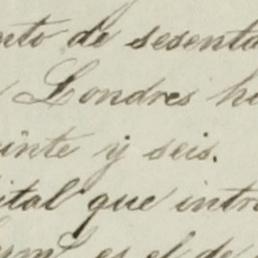 nto de sesenta
Londres h
inte y seis.
ital que intr
es el de